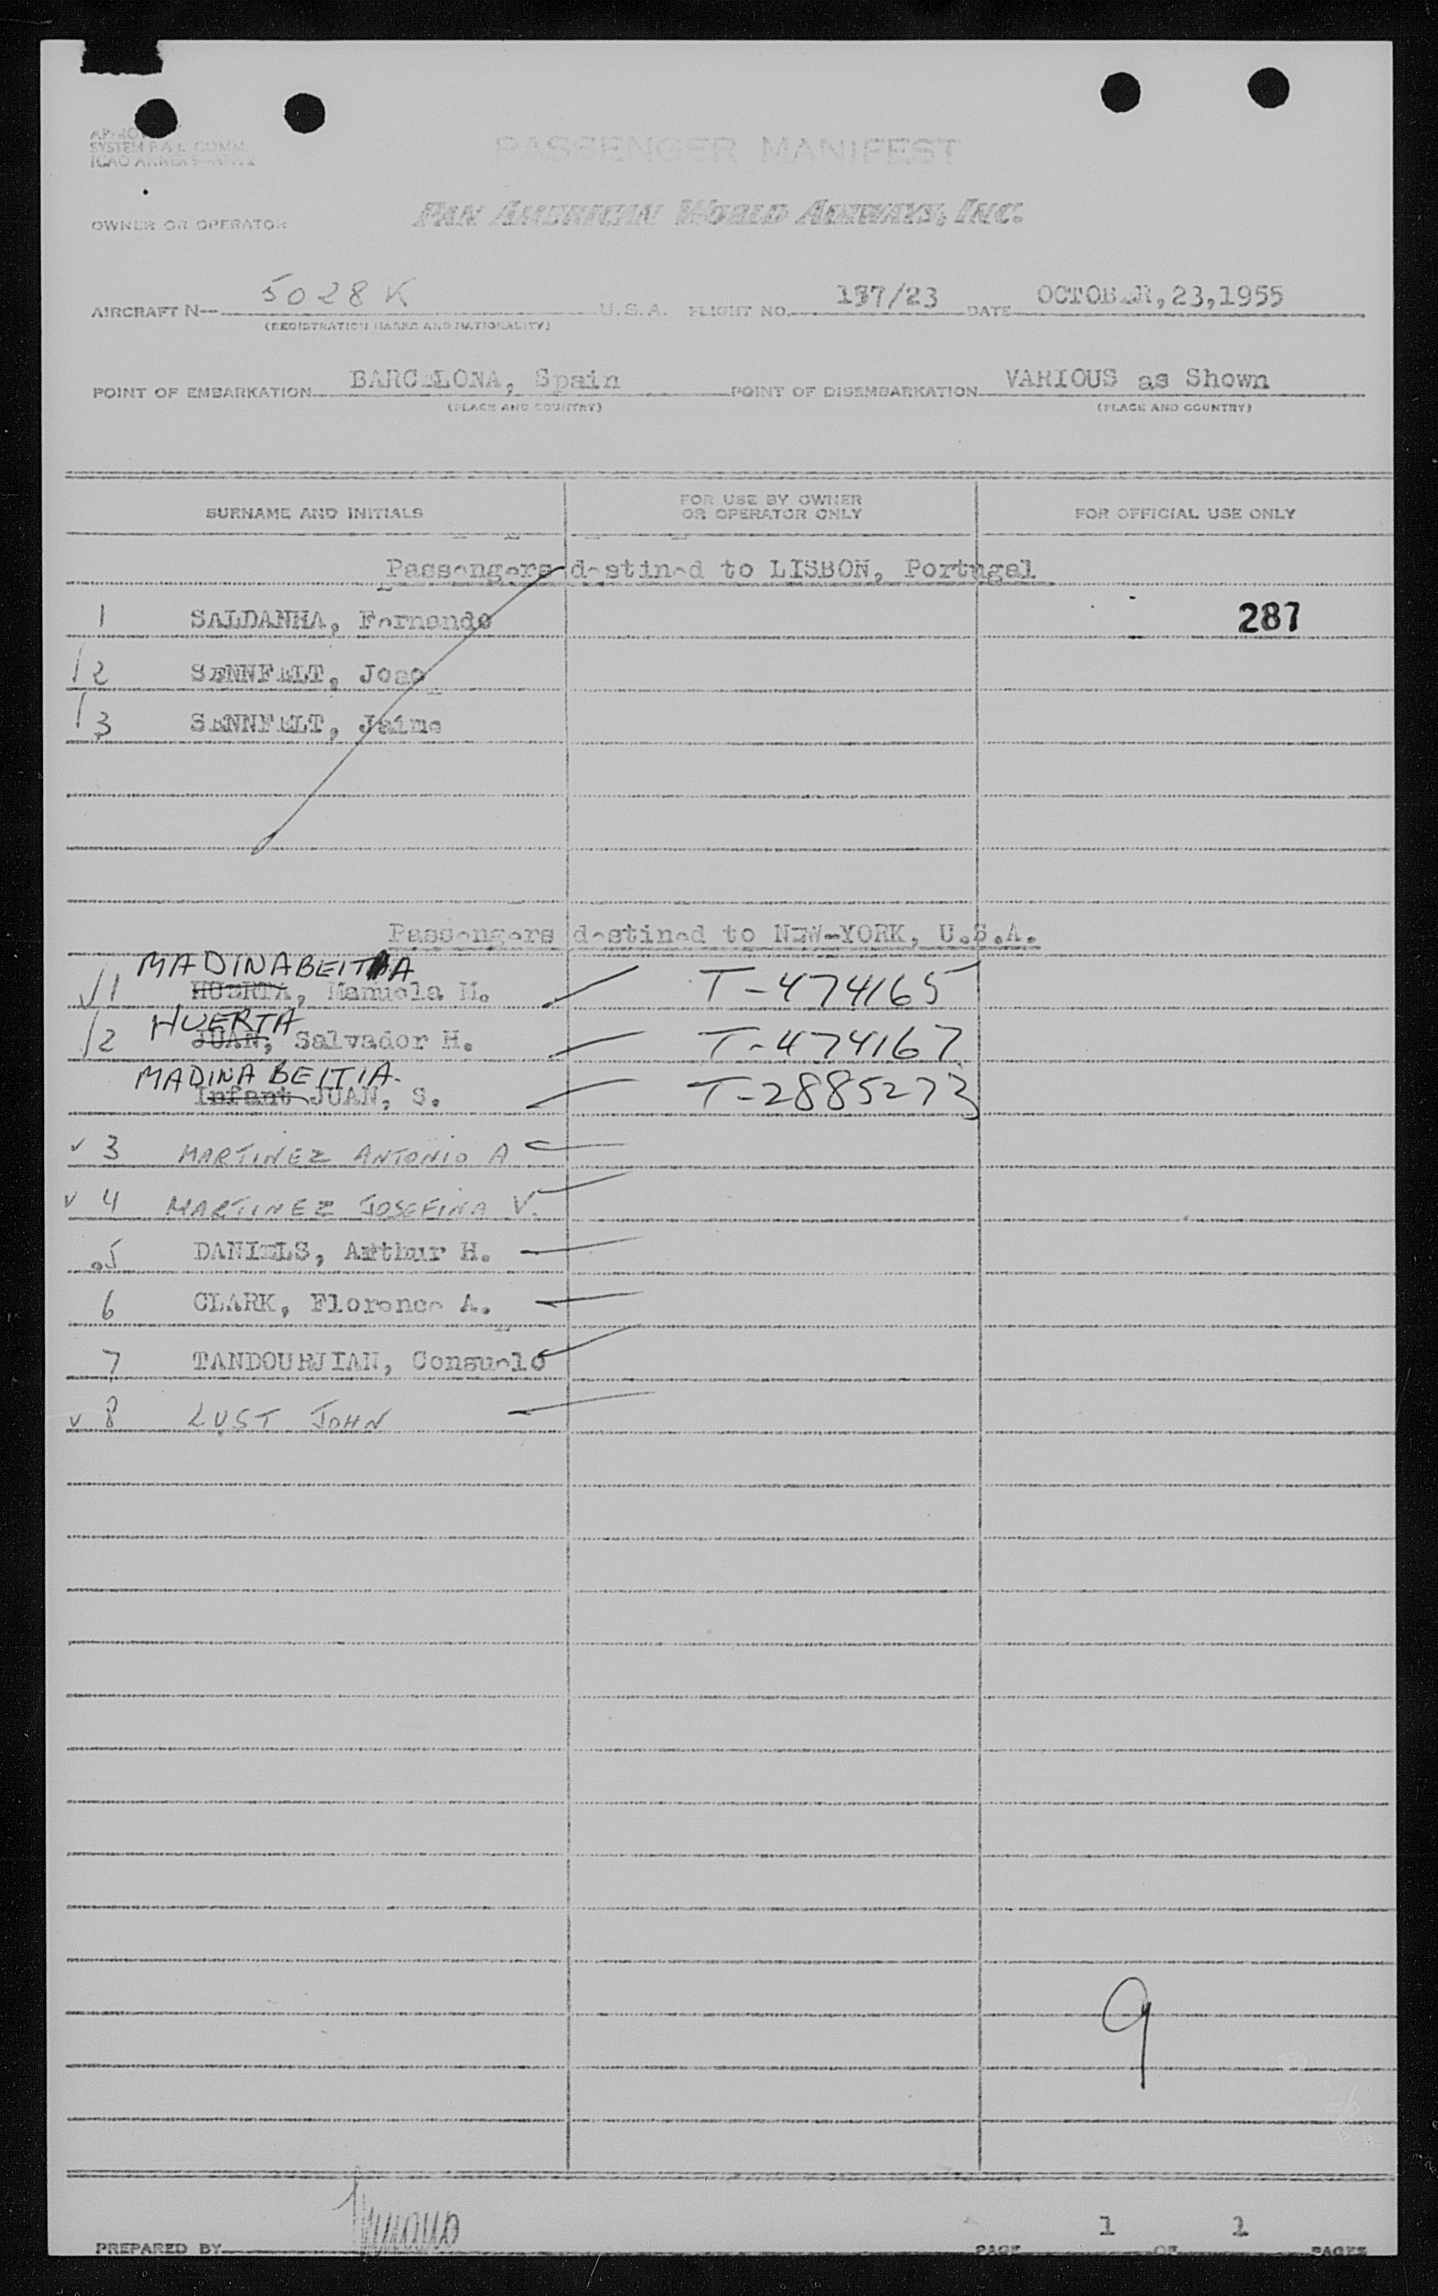 PASSENGER MANIFEST
SYSTEM P.A.L. COMM.
OWNER OR OPERATOR PAN AMERICAN WORLD AIRWAYS, INC.
AIRCRAFT N— 5028K U.S.A. FLIGHT NO. 137/23 DATE OCTOBER,23,1955
(REGISTRATION MARKS AND NATIONALITY)
POINT OF EMBARKATION BARCELONA, Spain POINT OF DISEMBARKATION VARIOUS as Shown
(PLACE AND COUNTRY) (PLACE AND COUNTRY)
SURNAME AND INITIALS FOR USE BY OWNER OR OPERATOR ONLY FOR OFFICIAL USE ONLY
Passengers destined to LISBON, Portugal
1 SALDANHA, Fernando 287
2 SENNFELT, Joao
3 SENNFELT, Jaime
Passengers destined to NEW-YORK, U.S.A.
MADINABEITIA
√1 HUERTA, Manuela M. T-474165
HUERTA
2 JUAN, Salvador H. T-474167
MADINABEITIA.
Infant JUAN, S. T-2885273
v 3 MARTINEZ ANTONIO A
v 4 MARTINEZ JOSEFINA V.
5 DANIELS, Arthur H.
6 CLARK, Florence A.
7 TANDOURJIAN, Consuelo
v 8 LUST JOHN
9
PREPARED BY PAGE 1 OF 1 PAGES